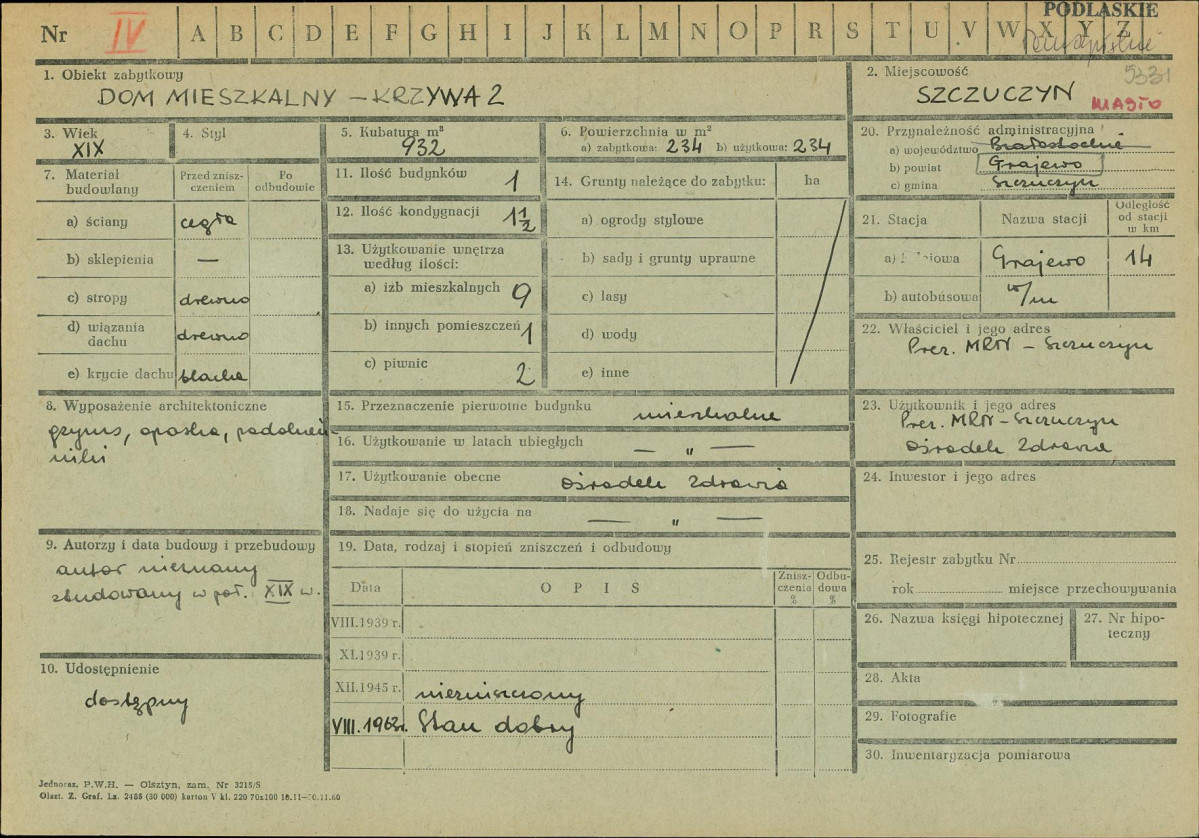 PODLASKIE
Nr IV A B C D E F G H I J K L M N O P R S T U V W X Y Z
5331
1. Obiekt zabytkowy
DOM MIESZKALNY – KRZYWA 2
2. Miejscowość
SZCZUCZYN
MIASTO
3. Wiek
XIX
4. Styl
5. Kubatura m³
932
6. Powierzchnia w m²
a) zabytkowa: 234 b) użytkowa: 234
7. Materiał budowlany
Przed znisz-
czeniem
Po
odbudowie
a) ściany cegła
b) sklepienia —
c) stropy drewno
d) wiązania
dachu drewno
e) krycie dachu blacha
8. Wyposażenie architektoniczne
gzyms, opaska,
9. Autorzy i data budowy i przebudowy
autor nieznany
zbudowany w poł. XIX w.
10. Udostępnienie
dostępny
11. Ilość budynków 1
12. Ilość kondygnacji 1 1/2
13. Użytkowanie wnętrza
według ilości:
a) izb mieszkalnych 9
b) innych pomieszczeń 1
c) piwnic 2
14. Grunty należące do zabytku: ha
a) ogrody stylowe
b) sady i grunty uprawne
c) lasy
d) wody
e) inne
15. Przeznaczenie pierwotne budynku mieszkalne
16. Użytkowanie w latach ubiegłych — „ —
17. Użytkowanie obecne Ośrodek Zdrowia
18. Nadaje się do użycia na — „ —
19. Data, rodzaj i stopień zniszczeń i odbudowy
Data OPIS Znisz-
czenia
% Odbu-
dowa
%
VIII.1939 r.
XI.1939 r.
XII.1945 r. niezniszczony
VIII.1963r. Stan dobry
20. Przynależność administracyjna
a) województwo Białostockie
b) powiat Grajewo
c) gmina Szczuczyn
21. Stacja Nazwa stacji Odległość
od stacji
w km
a) Grajewo 14
b) autobusowa w/m
22. Właściciel i jego adres
Prez. MRN – Szczuczyn
23. Użytkownik i jego adres
Prez. MRN – Szczuczyn
Ośrodek Zdrowia
24. Inwestor i jego adres
25. Rejestr zabytku Nr
rok miejsce przechowywania
26. Nazwa księgi hipotecznej
27. Nr hipo-
teczny
28. Akta
29. Fotografie
30. Inwentaryzacja pomiarowa
Jednoraz. P.W.H. — Olsztyn, zam. Nr 3215/S
Olszt. Z. Graf. Lz. 2485 (30 000) karton V kl. 220 70x100